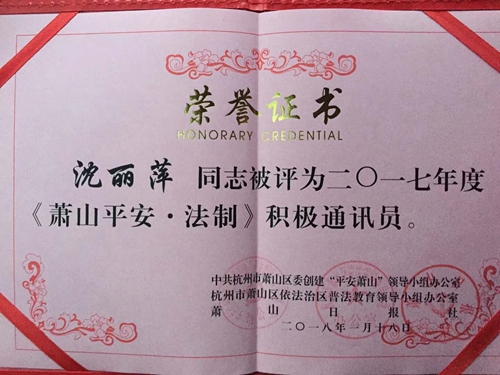 荣誉证书
HONORARY CREDENTIAL
沈丽萍 同志被评为二〇一七年度
《萧山平安·法制》积极通讯员。
中共杭州市萧山区委创建“平安萧山”领导小组办公室
杭州市萧山区依法治区普法教育领导小组办公室
萧山日报社
二〇一八年一月十八日